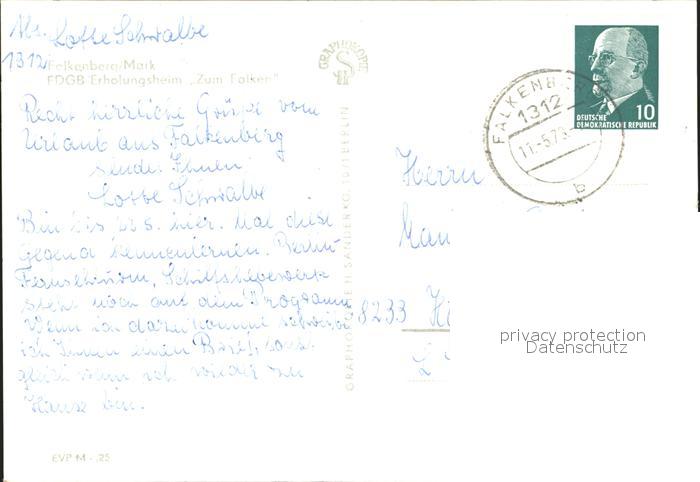 Abs. Lotte Schwalbe
1312 Falkenberg/Mark
FDGB-Erholungsheim „Zum Falken"
Recht herzliche Grüße vom
Urlaub aus Falkenberg
sendet Ihnen
Lotte Schwalbe
Bin bis 22.5. hier. Mal diese
Gegend kennenlernen. Berlin
Fernsehturm, Schiffshebewerk
steht noch auf dem Programm
Wenn ich dazu komme schreibe
ich Ihnen einen Brief, sonst
gleich wenn ich wieder zu
Hause bin.
EVP M -.25
GRAPHOKOPIE
GRAPHOKOPIE H. SANDER KG, 1071 BERLIN
FALKENBERG
1312
11.-5.73
b
10
DEUTSCHE
DEMOKRATISCHE REPUBLIK
Herrn
8233
privacy protection
Datenschutz